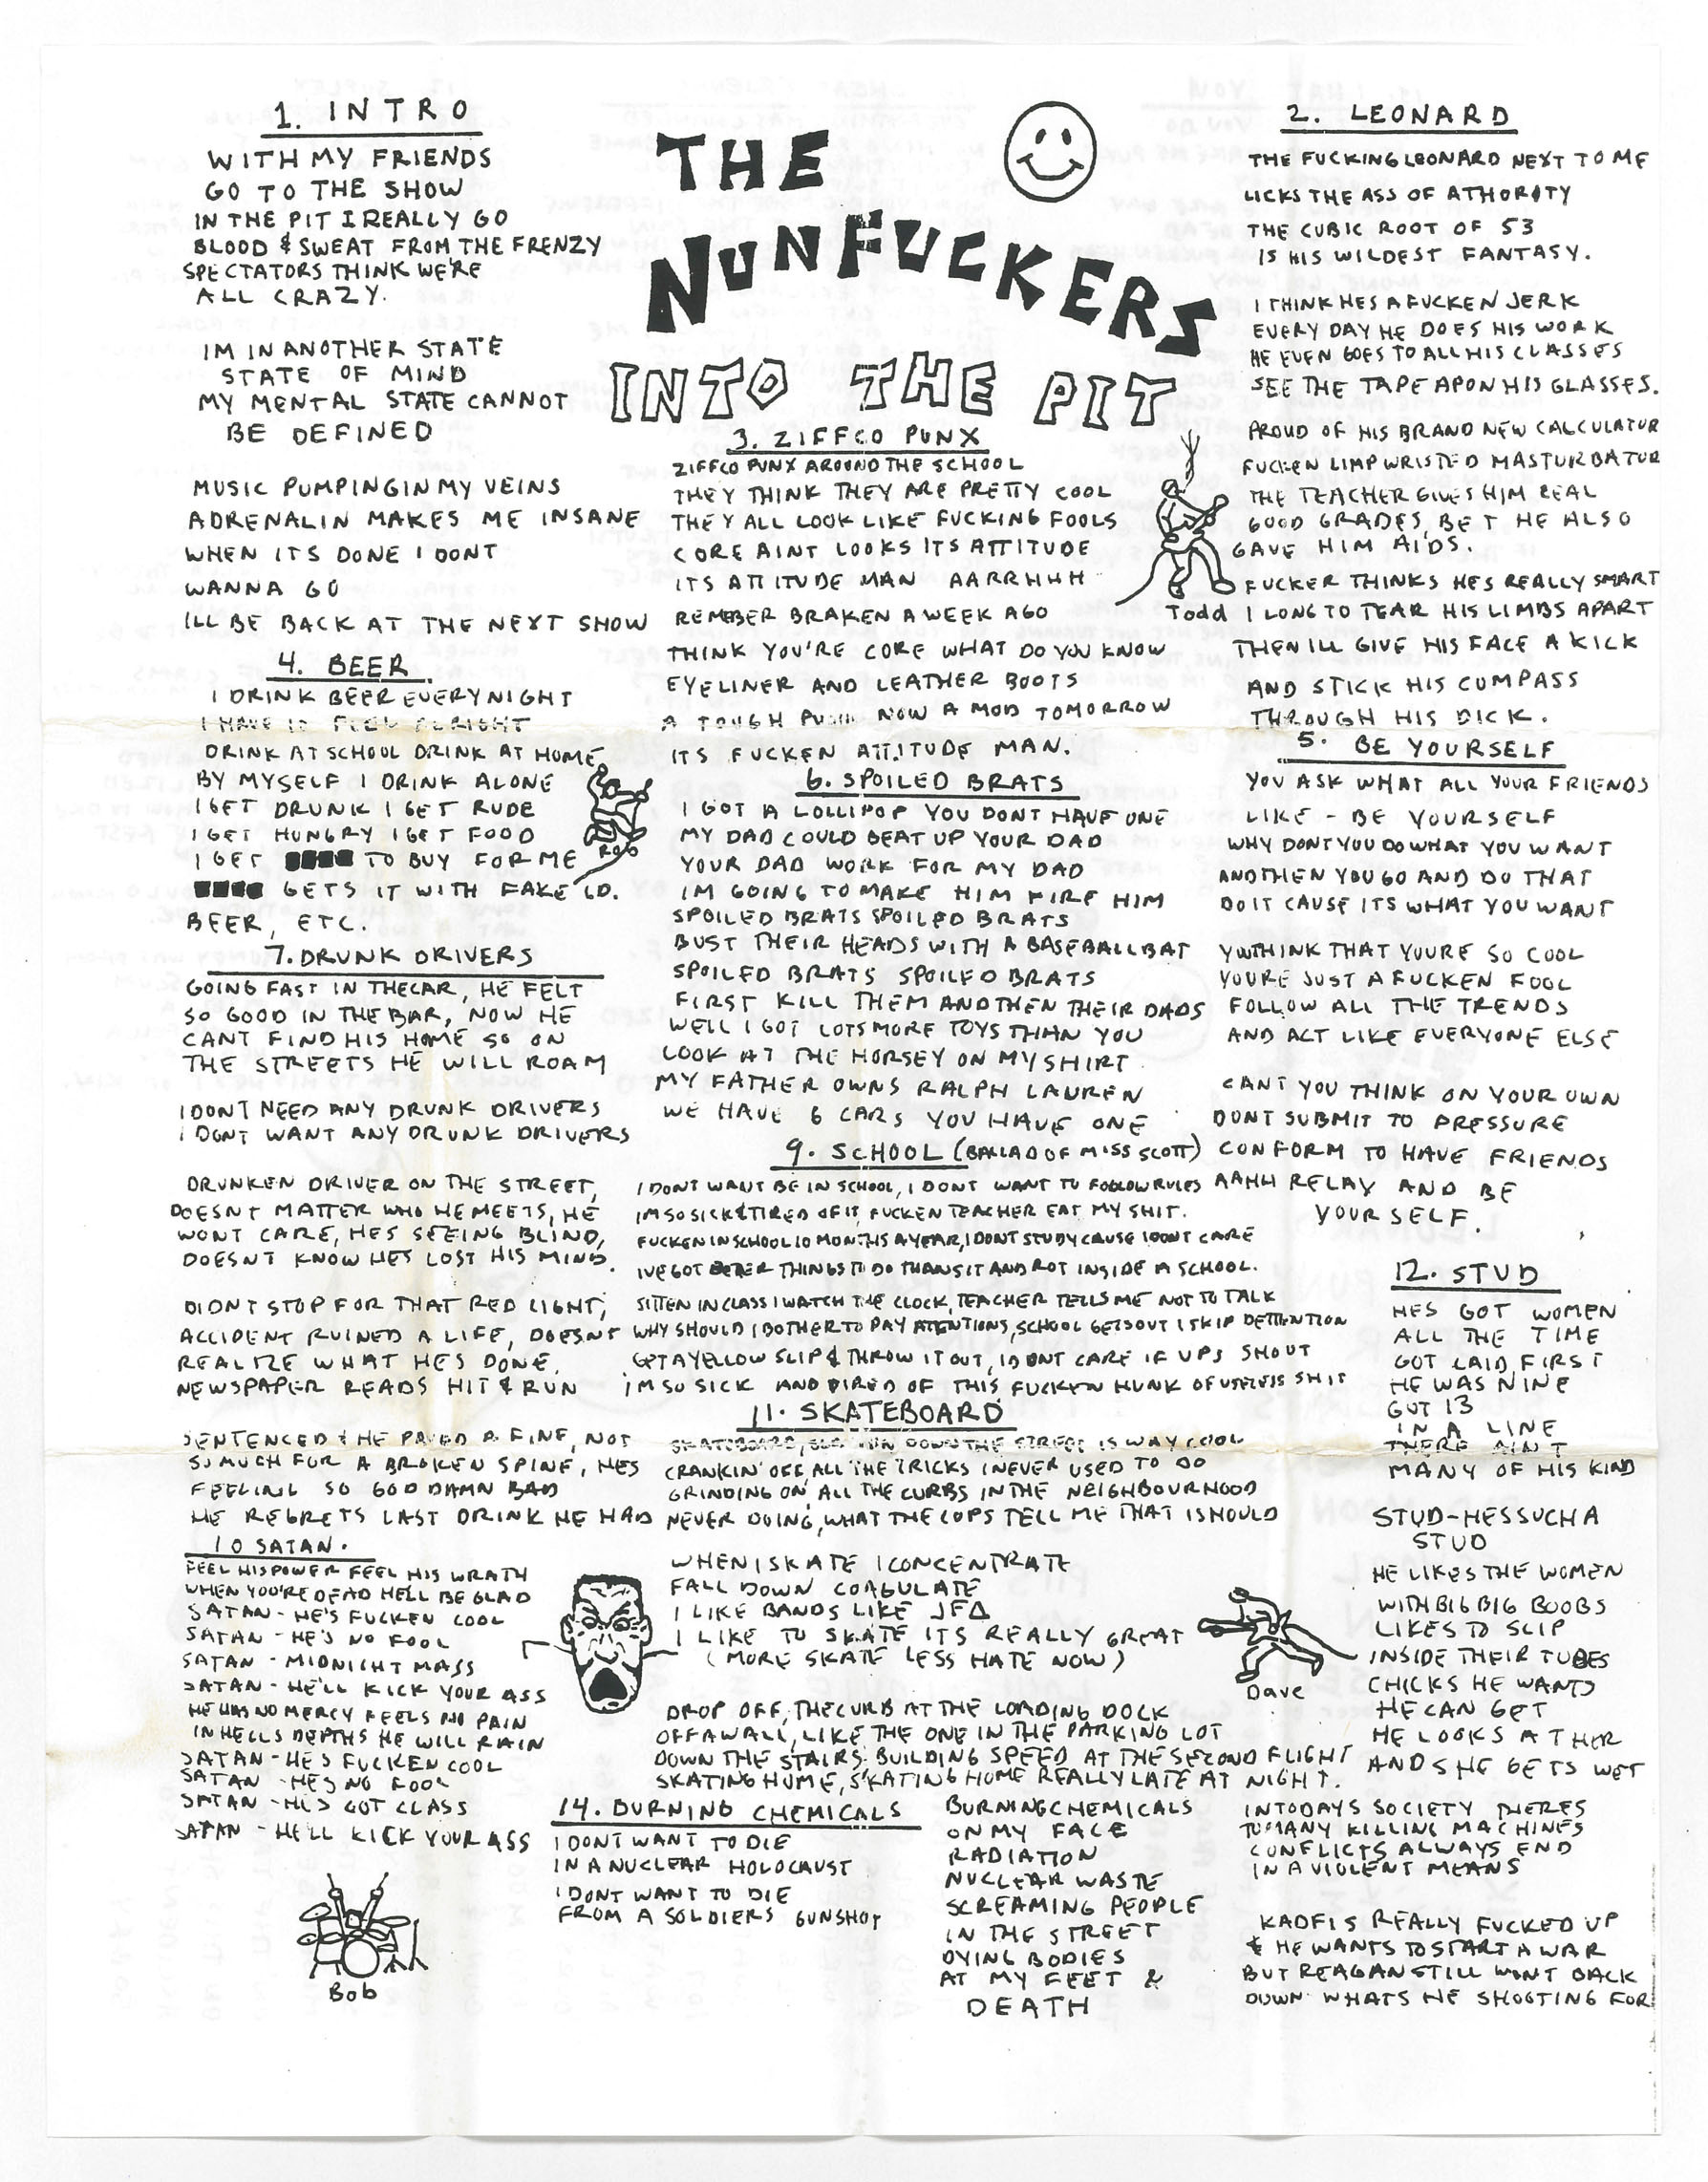 THE
NUNFUCKERS
INTO THE PIT
1. INTRO
WITH MY FRIENDS
GO TO THE SHOW
IN THE PIT I REALLY GO
BLOOD & SWEAT FROM THE FRENZY
SPECTATORS THINK WE'RE
ALL CRAZY.
IM IN ANOTHER STATE
STATE OF MIND
MY MENTAL STATE CANNOT
BE DEFINED
MUSIC PUMPING IN MY VEINS
ADRENALIN MAKES ME INSANE
WHEN ITS DONE I DONT
WANNA GO
ILL BE BACK AT THE NEXT SHOW
2. LEONARD
THE FUCKING LEONARD NEXT TO ME
LICKS THE ASS OF ATHORITY
THE CUBIC ROOT OF 53
IS HIS WILDEST FANTASY.
I THINK HES A FUCKEN JERK
EVERY DAY HE DOES HIS WORK
HE EVEN GOES TO ALL HIS CLASSES
SEE THE TAPE APON HIS GLASSES.
PROUD OF HIS BRAND NEW CALCULATOR
FUCKEN LIMP WRISTED MASTURBATOR
THE TEACHER GIVES HIM REAL
GOOD GRADES, BET HE ALSO
GAVE HIM AIDS.
FUCKER THINKS HES REALLY SMART
I LONG TO TEAR HIS LIMBS APART
THEN ILL GIVE HIS FACE A KICK
AND STICK HIS COMPASS
THROUGH HIS DICK.
3. ZIFFCO PUNX
ZIFFCO PUNX AROUND THE SCHOOL
THEY THINK THEY ARE PRETTY COOL
THEY ALL LOOK LIKE FUCKING FOOLS
CORE AINT LOOKS ITS ATTITUDE
ITS ATTITUDE MAN AARRHHH
REMEBER BRAKEN A WEEK AGO
THINK YOU'RE CORE WHAT DO YOU KNOW
EYELINER AND LEATHER BOOTS
A TOUGH PUNK NOW A MOD TOMORROW
ITS FUCKEN ATTITUDE MAN.
Todd
4. BEER
I DRINK BEER EVERY NIGHT
I HAVE IT FEEL ALRIGHT
DRINK AT SCHOOL DRINK AT HOME
BY MYSELF I DRINK ALONE
I GET DRUNK I GET RUDE
I GET HUNGRY I GET FOOD
I GET TO BUY FOR ME
GETS IT WITH FAKE I.D.
BEER, ETC.
Rob
5. BE YOURSELF
YOU ASK WHAT ALL YOUR FRIENDS
LIKE - BE YOURSELF
WHY DONT YOU DO WHAT YOU WANT
AND THEN YOU GO AND DO THAT
DO IT CAUSE ITS WHAT YOU WANT
YOU THINK THAT YOURE SO COOL
YOURE JUST A FUCKEN FOOL
FOLLOW ALL THE TRENDS
AND ACT LIKE EVERYONE ELSE
CANT YOU THINK ON YOUR OWN
DONT SUBMIT TO PRESSURE
CONFORM TO HAVE FRIENDS
AAHH RELAX AND BE
YOURSELF.
6. SPOILED BRATS
I GOT A LOLLIPOP YOU DONT HAVE ONE
MY DAD COULD BEAT UP YOUR DAD
YOUR DAD WORK FOR MY DAD
IM GOING TO MAKE HIM FIRE HIM
SPOILED BRATS SPOILED BRATS
BUST THEIR HEADS WITH A BASEBALL BAT
SPOILED BRATS SPOILED BRATS
FIRST KILL THEM AND THEN THEIR DADS
WELL I GOT LOTS MORE TOYS THAN YOU
LOOK AT THE HORSEY ON MY SHIRT
MY FATHER OWNS RALPH LAUREN
WE HAVE 6 CARS YOU HAVE ONE
7. DRUNK DRIVERS
GOING FAST IN THE CAR, HE FELT
SO GOOD IN THE BAR, NOW HE
CANT FIND HIS HOME SO ON
THE STREETS HE WILL ROAM
I DONT NEED ANY DRUNK DRIVERS
I DONT WANT ANY DRUNK DRIVERS
DRUNKEN DRIVER ON THE STREET,
DOESNT MATTER WHO HE MEETS, HE
WONT CARE, HES SEEING BLIND,
DOESNT KNOW HES LOST HIS MIND.
DIDNT STOP FOR THAT RED LIGHT,
ACCIDENT RUINED A LIFE, DOESNT
REALIZE WHAT HES DONE,
NEWSPAPER READS HIT & RUN
SENTENCED & HE PAYED A FINE, NOT
SO MUCH FOR A BROKEN SPINE, HES
FEELING SO GOD DAMN BAD
HE REGRETS LAST DRINK HE HAD
9. SCHOOL (BALLAD OF MISS SCOTT)
I DONT WANT BE IN SCHOOL, I DONT WANT TO FOLLOW RULES
IM SO SICK & TIRED OF IT, FUCKEN TEACHER EAT MY SHIT.
FUCKEN IN SCHOOL 10 MONTHS A YEAR, I DONT STUDY CAUSE I DONT CARE
IVE GOT BETTER THINGS TO DO THAN SIT AND ROT INSIDE A SCHOOL.
SITTEN IN CLASS I WATCH THE CLOCK, TEACHER TELLS ME NOT TO TALK
WHY SHOULD I BOTHER TO PAY ATTENTIONS, SCHOOL GETS OUT I SKIP DETTENTION
GET A YELLOW SLIP & THROW IT OUT, I DONT CARE IF UPS SHOUT
IM SO SICK AND TIRED OF THIS FUCKEN HUNK OF USELESS SHIT
10 SATAN.
FEEL HIS POWER FEEL HIS WRATH
WHEN YOU'RE DEAD HE'LL BE GLAD
SATAN - HE'S FUCKEN COOL
SATAN - HE'S NO FOOL
SATAN - MIDNIGHT MASS
SATAN - HE'LL KICK YOUR ASS
HE HAS NO MERCY FEELS NO PAIN
IN HELLS DEPTHS HE WILL RAIN
SATAN - HES FUCKEN COOL
SATAN - HES NO FOOL
SATAN - HES GOT CLASS
SATAN - HE'LL KICK YOUR ASS
Bob
11. SKATEBOARD
SKATEBOARD, DOWN THE STREET IS WAY COOL
CRANKIN' OFF, ALL THE TRICKS I NEVER USED TO DO
GRINDING ON, ALL THE CURBS IN THE NEIGHBOURHOOD
NEVER DOING, WHAT THE COPS TELL ME THAT I SHOULD
WHEN I SKATE I CONCENTRATE
FALL DOWN COAGULATE
I LIKE BANDS LIKE JFA
I LIKE TO SKATE ITS REALLY GREAT
(MORE SKATE LESS HATE NOW)
DROP OFF, THE CURB AT THE LOADING DOCK
OFF A WALL, LIKE THE ONE IN THE PARKING LOT
DOWN THE STAIRS, BUILDING SPEED AT THE SECOND FLIGHT
SKATING HOME, SKATING HOME REALLY LATE AT NIGHT.
Dave
12. STUD
HES GOT WOMEN
ALL THE TIME
GOT LAID FIRST
HE WAS NINE
GOT 13
IN A LINE
THERE AIN'T
MANY OF HIS KIND
STUD-HES SUCH A
STUD
HE LIKES THE WOMEN
WITH BIG BIG BOOBS
LIKES TO SLIP
INSIDE THEIR TUBES
CHICKS HE WANTS
HE CAN GET
HE LOOKS AT HER
AND SHE GETS WET
14. BURNING CHEMICALS
I DONT WANT TO DIE
IN A NUCLEAR HOLOCAUST
I DONT WANT TO DIE
FROM A SOLDIERS GUNSHOT
BURNING CHEMICALS
ON MY FACE
RADIATION
NUCLEAR WASTE
SCREAMING PEOPLE
IN THE STREET
DYING BODIES
AT MY FEET &
DEATH
IN TODAYS SOCIETY THERES
TO MANY KILLING MACHINES
CONFLICTS ALWAYS END
IN A VIOLENT MEANS
KADFI S REALLY FUCKED UP
& HE WANTS TO START A WAR
BUT REAGAN STILL WONT BACK
DOWN WHATS HE SHOOTING FOR